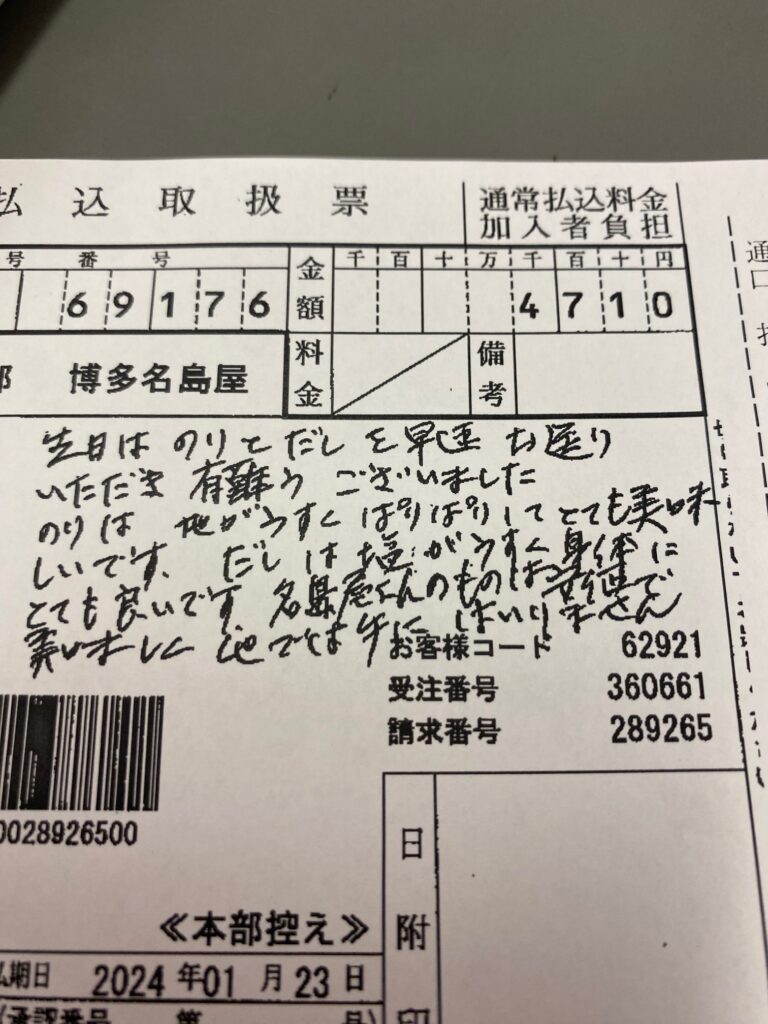 払込取扱票
通常払込料金
加入者負担
号 番 号
69176
金額
千 百 十 万 千 百 十 円
4710
料金
備考
博多名島屋
先日は のりとだしを早速 お送り
いただき 有難う ございました
のりは 地がうすく ぱりぱりして とても美味
しいです、 だしは 塩がうすく 身体に
とても良いです 名島屋さんのものは
美味しく 他では手に はいりません
お客様コード 62921
受注番号 360661
請求番号 289265
0028926500
日附印
≪本部控え≫
払期日 2024 年 01 月 23 日
(承認番号 第 号)